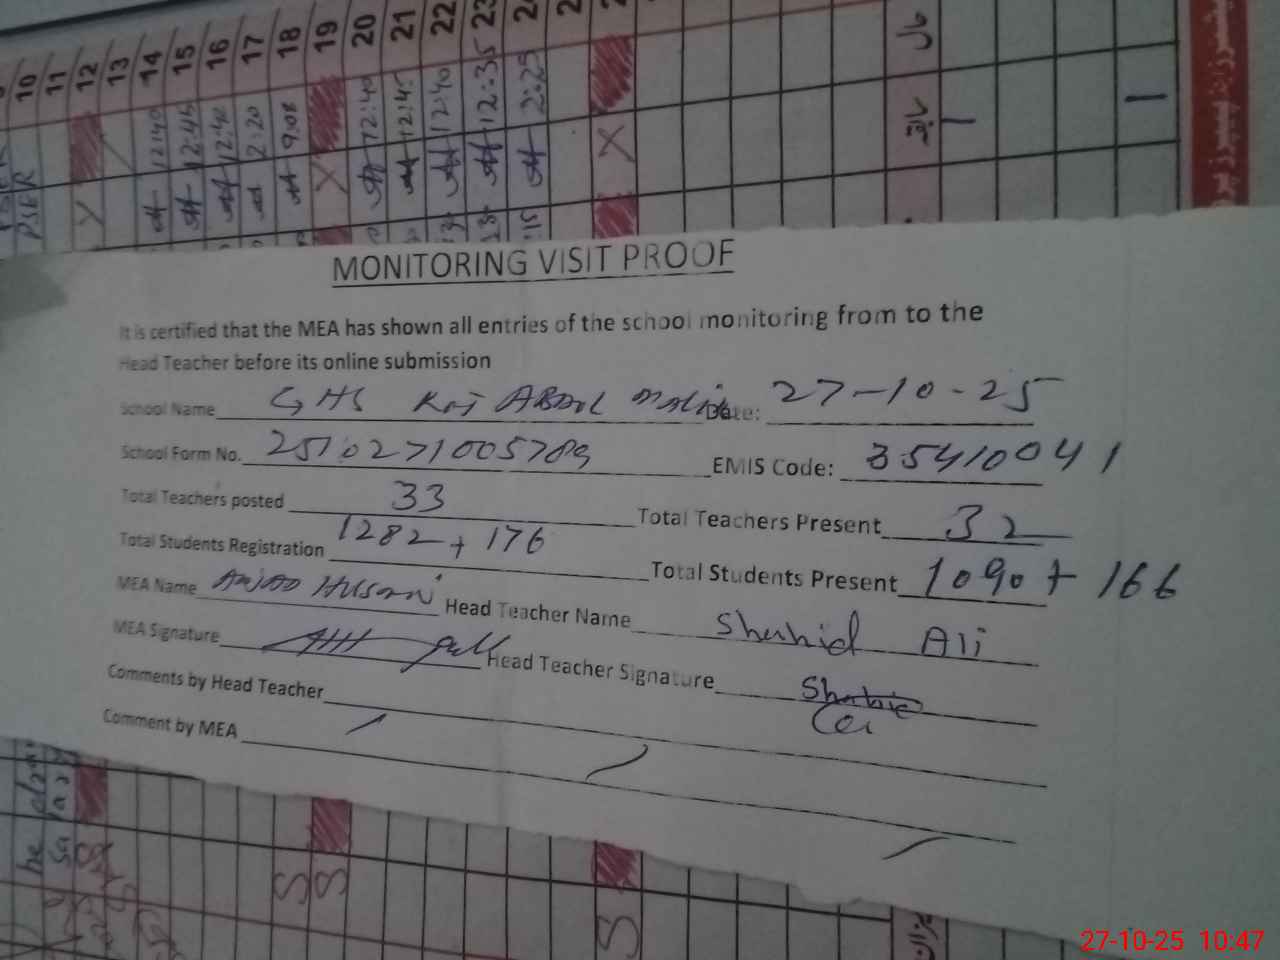 10 11 12 13 14 15 16 17 18 19 20 21 22 23 24
PSER
12:40 12:45 12:40 2:20 9:08 12:40 12:45 12:40 12:35 2:25
حال
سابقہ
MONITORING VISIT PROOF
It is certified that the MEA has shown all entries of the school monitoring from to the
Head Teacher before its online submission
School Name GHS Kot ABDUL MALIK Date: 27-10-25
School Form No. 2510271005789 EMIS Code: 35410041
Total Teachers posted 33 Total Teachers Present 32
Total Students Registration 1282 + 176 Total Students Present 1090 + 166
MEA Name AMJAD HUSSAIN Head Teacher Name Shahid Ali
MEA Signature Head Teacher Signature Shahid
Comments by Head Teacher
Comment by MEA
S S
S
27-10-25 10:47